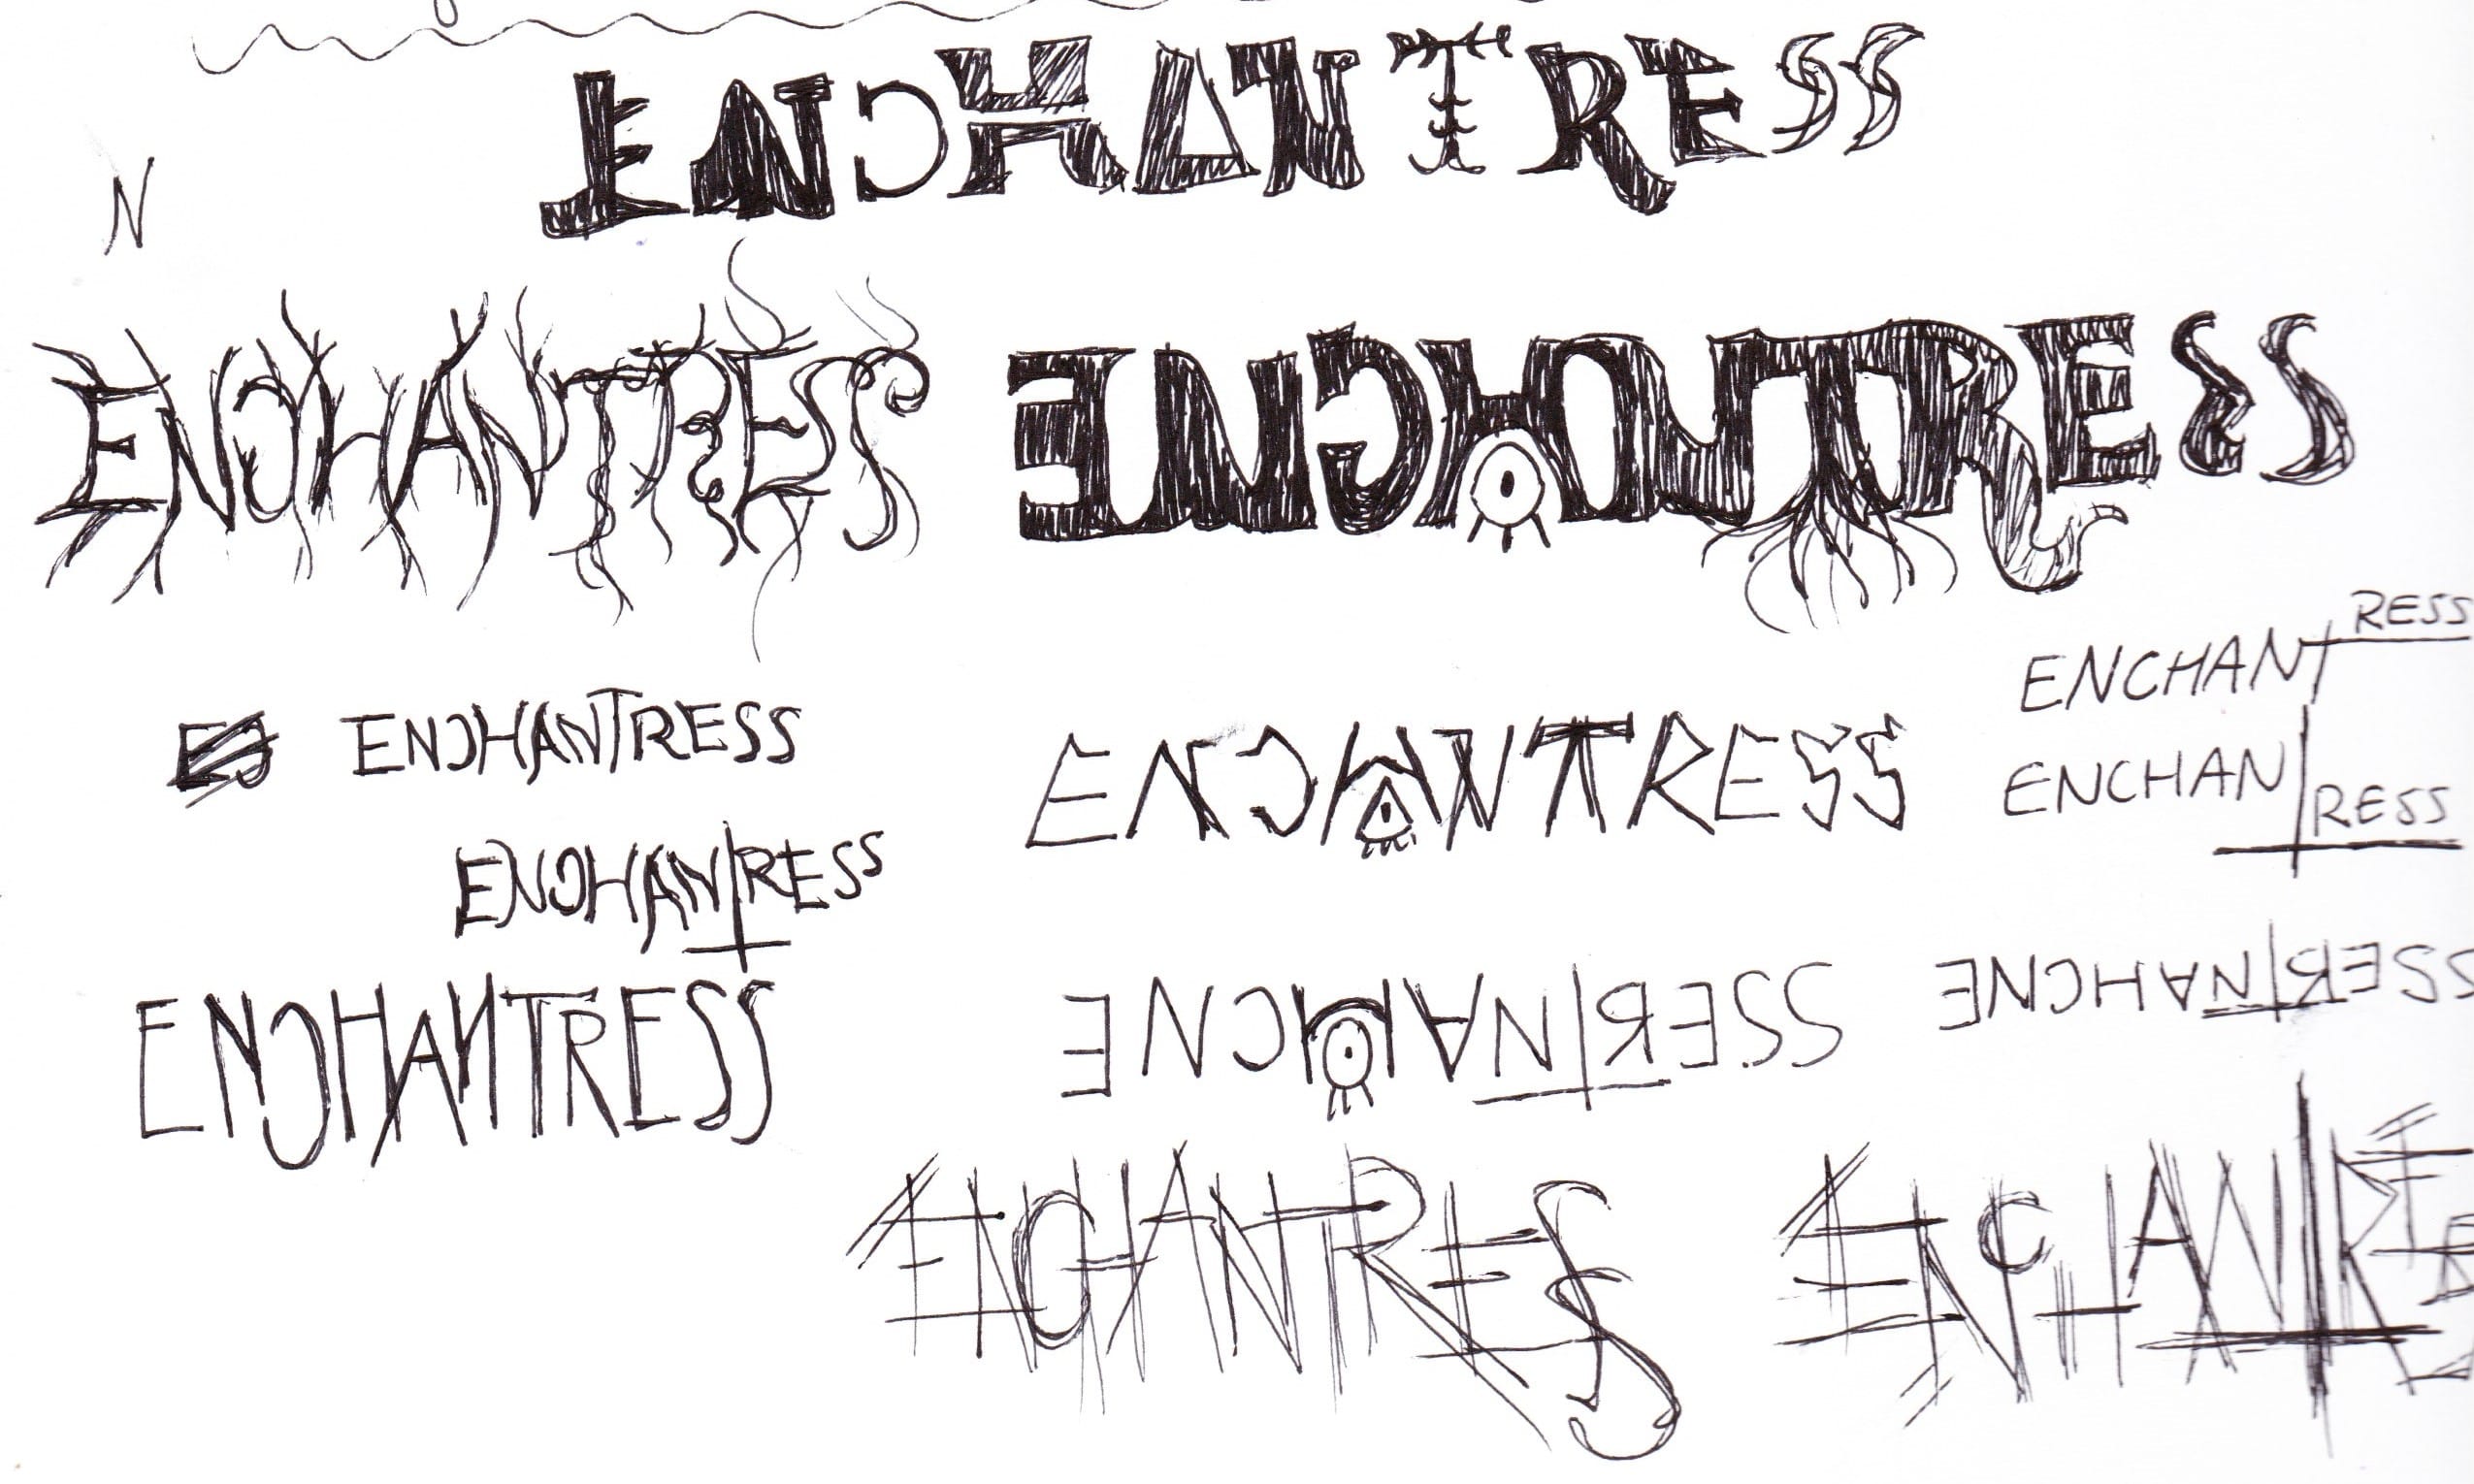 ENCHANTRESS
N
ENCHANTRESS
ENCHANTRESS
RESS
ENCHANT
ENCHANTRESS
ENCHANTRESS
ENCHAN
TRESS
ENCHANTRESS
ENCHANTRESS
ENCHANTRESS
ENCHANTRESS
ENCHANTRESS
ENCHANTRE